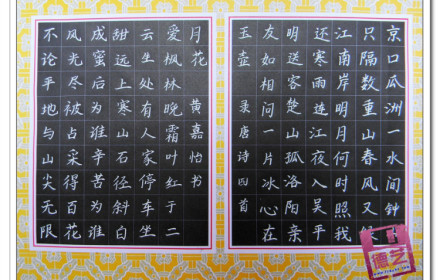 京口瓜洲一水间钟
只隔数重山春风又
江南岸明月何时照我
还寒雨连江夜入吴平
明送客楚山孤洛阳亲
友如相问一片冰心在
玉壶 录唐诗四首
不论平地与山尖无限
风光尽被占采得百花
成蜜后为谁辛苦为谁
甜远上寒山石径斜白
云生处有人家停车坐
爱枫林晚霜叶红于二
月花 黄嘉怡书
德艺